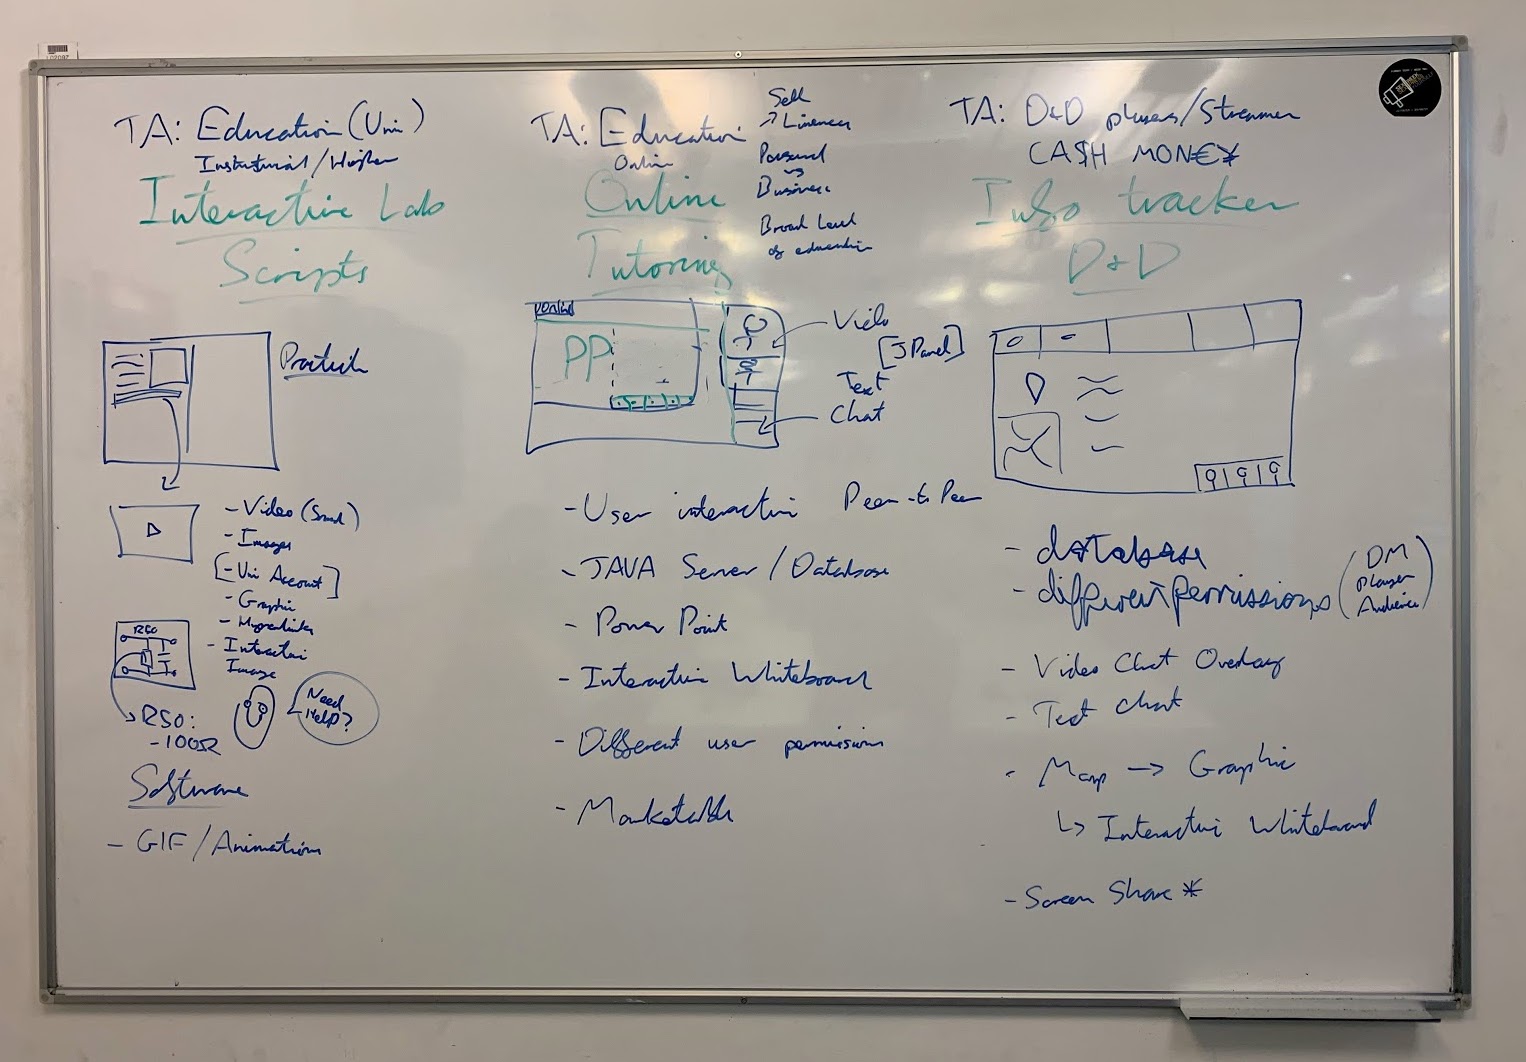 TA: Education (Uni)
Institutional/Higher
Interactive Lab
Scripts
Video (Sound)
- Images
[- Uni Account]
- Graphic
- Hyperlinks
- Interactive
Image
R50
R50:
- 100Ω
Need
Help?
Software
- GIF/Animations
TA: Education
Online
Online
Tutoring
Sell
→ Licences
Personal
Business
Broad Level
of education
PP
Video
[J Panel]
Text
Chat
- User interaction Peer-to Peer
- JAVA Server / Database
- Power Point
- Interactive Whiteboard
- Different user permissions
- Marketable
TA: D&D players/Streamers
CA$H MON€¥
Info tracker
D&D
- database
- different permissions (DM
player
Audience)
- Video Chat Overlay
- Text Chat
- Map → Graphic
↳ Interactive Whiteboard
- Screen Share *